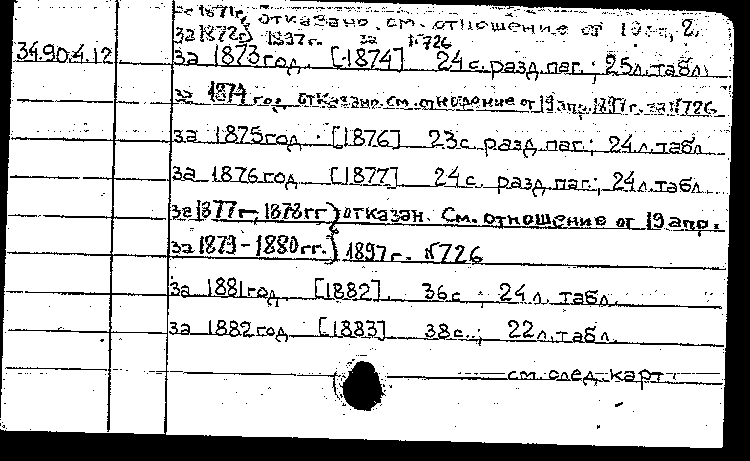 за 1871г, отказано. см. отношение от 19
за 1872г) 1897г. за №726
34.90.4.12 за 1873 год. [1874] 24 с. разд. паг.; 25 л. табл.
за 1874 год отказано. см. отношение от 19 апр. 1897г. за №726
за 1875 год. [1876] 23 с. разд. паг.; 24 л. табл.
за 1876 год [1877] 24 с. разд. паг.; 24 л. табл.
за 1877г., 1878гг) отказан. См. отношение от 19 апр.
за 1879-1880гг.) 1897г. №726
за 1881 год. [1882]. 36 с.; 24 л. табл.
за 1882 год [1883] 38 с.; 22 л. табл.
см. след. карт.